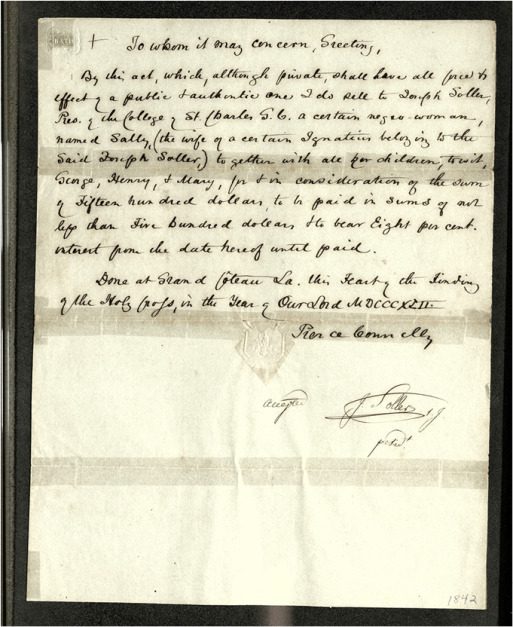 + To whom it may concern, Greeting,
By this act, which, although private, shall have all force &
effect of a public & authentic one I do sell to Joseph Soller,
Pres. of the College of St. Charles G.C. a certain negro woman,
named Sally, (the wife of a certain Ignatius belong to the
said Joseph Soller,) together with all her children, to wit,
George, Henry, & Mary, for & in consideration of the sum
of Fifteen hundred dollars to be paid in sums of not
less than Five Hundred dollars & to bear Eight per cent.
interest from the date hereof until paid.
Done at Grand Coteau La. this Feast of the Finding
of the Holy Cross, in the Year of Our Lord MDCCCXLII.
Pierce Connelly
accepted J. Soller s.j.
1842